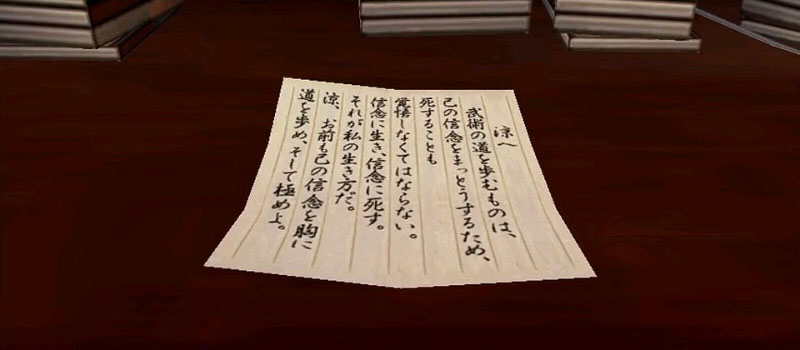 涼へ
武術の道を歩むものは、
己の信念をまっとうするため、
死することも
覚悟しなくてはならない。
信念に生き、信念に死す。
それが私の生き方だ。
涼、お前も己の信念を胸に
道を歩め、そして極めよ。